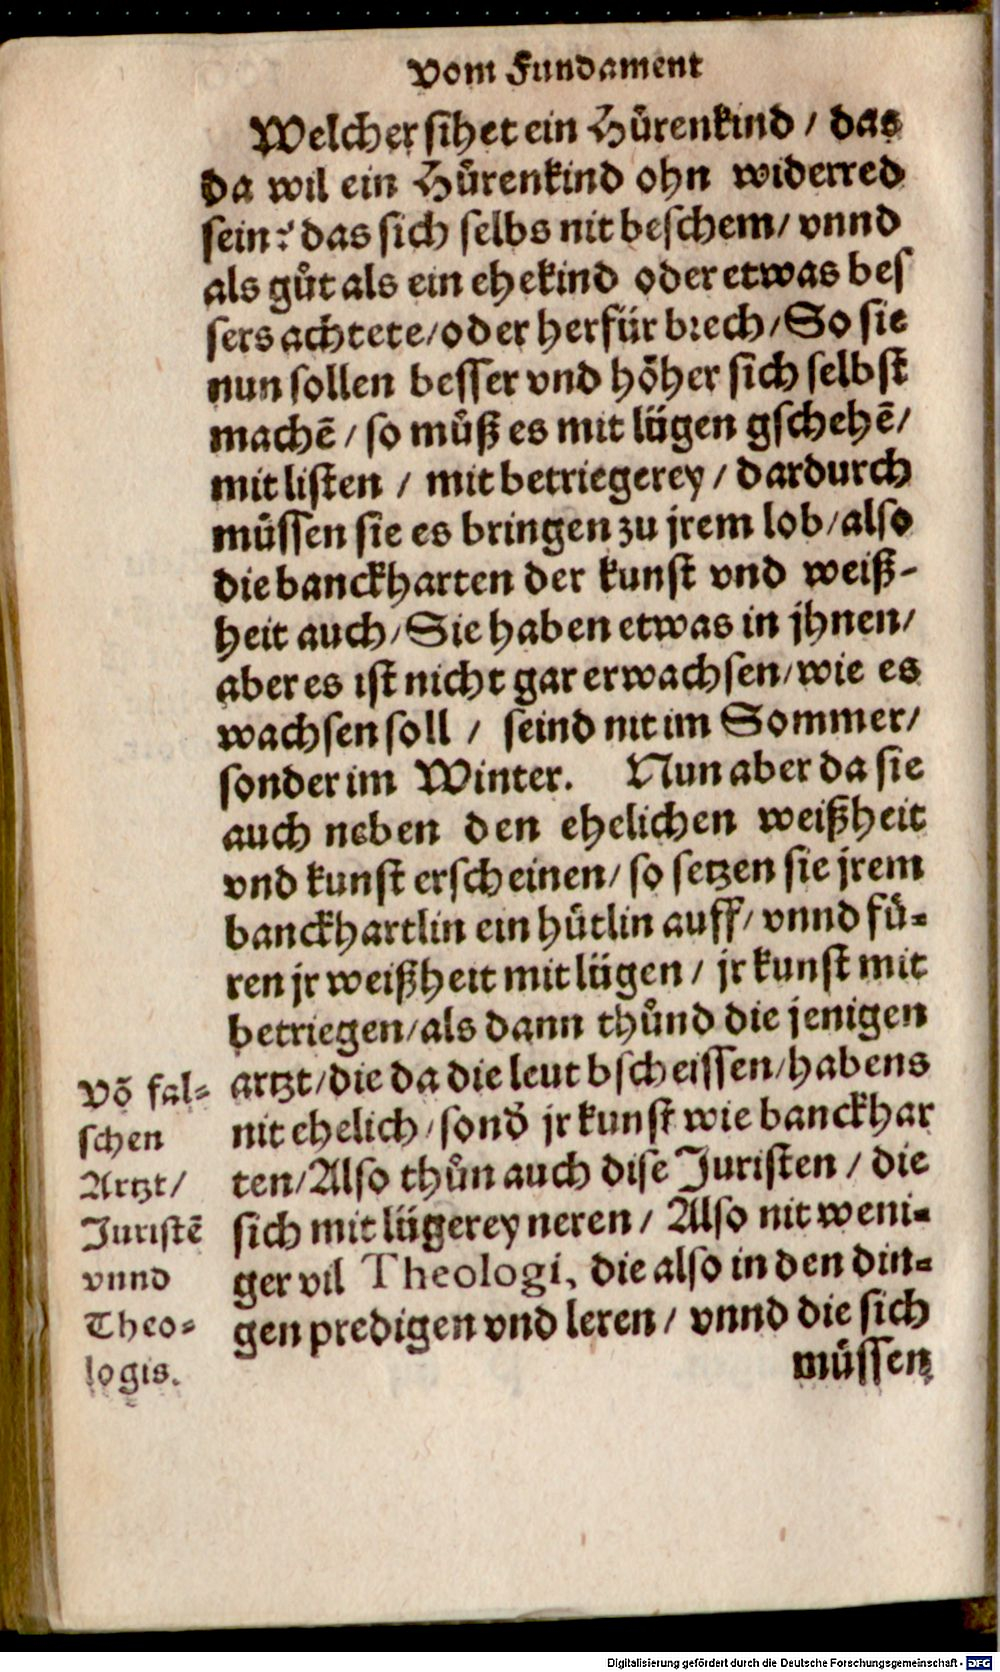 Vom Fundament
Welcher sihet ein Hůrenkind / das
da wil ein Hůrenkind ohn widerred
sein? das sich selbs nit beschem / vnnd
als gůt als ein ehekind oder etwas bes
sers achtete / oder herfür brech / So sie
nun sollen besser vnd höher sich selbst
machē / so můß es mit lügen gschehē /
mit listen / mit betriegerey / dardurch
müssen sie es bringen zu jrem lob / also
die banckharten der kunst vnd weiß-
heit auch / Sie haben etwas in jhnen /
aber es ist nicht gar erwachsen / wie es
wachsen soll / seind nit im Sommer /
sonder im Winter. Nun aber da sie
auch neben den ehelichen weißheit
vnd kunst erscheinen / so setzen sie jrem
banckhartlin ein hütlin auff / vnnd fü-
ren jr weißheit mit lügen / jr kunst mit
betriegen / als dann thůnd die jenigen
artzt / die da die leut bscheissen / habens
nit ehelich / sond̄ jr kunst wie banckhar
ten / Also thůn auch dise Juristen / die
sich mit lügerey neren / Also nit weni-
ger vil Theologi, die also in den din-
gen predigen vnd leren / vnnd die sich
müssen
Võ fal-
schen
Artzt /
Juristē
vnnd
Theo-
logis.
Digitalisierung gefördert durch die Deutsche Forschungsgemeinschaft - DFG